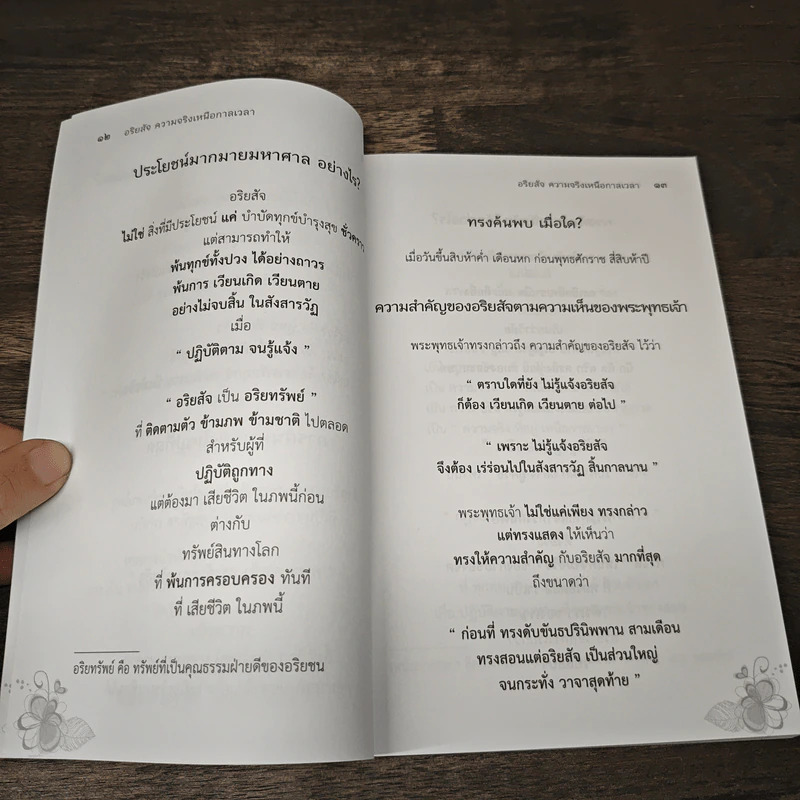 ๑๒ อริยสัจ ความจริงเหนือกาลเวลา
ประโยชน์มากมายมหาศาล อย่างไร?
อริยสัจ
ไม่ใช่ สิ่งที่มีประโยชน์ แค่ บำบัดทุกข์บำรุงสุข ชั่วคราว
แต่สามารถทำให้
พ้นทุกข์ทั้งปวง ได้อย่างถาวร
พ้นการ เวียนเกิด เวียนตาย
อย่างไม่จบสิ้น ในสังสารวัฏ
เมื่อ
“ ปฏิบัติตาม จนรู้แจ้ง ”
“ อริยสัจ เป็น อริยทรัพย์ ”
ที่ ติดตามตัว ข้ามภพ ข้ามชาติ ไปตลอด
สำหรับผู้ที่
ปฏิบัติถูกทาง
แต่ต้องมา เสียชีวิต ในภพนี้ก่อน
ต่างกับ
ทรัพย์สินทางโลก
ที่ พ้นการครอบครอง ทันที
ที่ เสียชีวิต ในภพนี้
อริยทรัพย์ คือ ทรัพย์ที่เป็นคุณธรรมฝ่ายดีของอริยชน
อริยสัจ ความจริงเหนือกาลเวลา ๑๓
ทรงค้นพบ เมื่อใด?
เมื่อวันขึ้นสิบห้าค่ำ เดือนหก ก่อนพุทธศักราช สี่สิบห้าปี
ความสำคัญของอริยสัจตามความเห็นของพระพุทธเจ้า
พระพุทธเจ้าทรงกล่าวถึง ความสำคัญของอริยสัจ ไว้ว่า
“ ตราบใดที่ยัง ไม่รู้แจ้งอริยสัจ
ก็ต้อง เวียนเกิด เวียนตาย ต่อไป ”
“ เพราะ ไม่รู้แจ้งอริยสัจ
จึงต้อง เร่ร่อนไปในสังสารวัฏ สิ้นกาลนาน ”
พระพุทธเจ้า ไม่ใช่แค่เพียง ทรงกล่าว
แต่ทรงแสดง ให้เห็นว่า
ทรงให้ความสำคัญ กับอริยสัจ มากที่สุด
ถึงขนาดว่า
“ ก่อนที่ ทรงดับขันธปรินิพพาน สามเดือน
ทรงสอนแต่อริยสัจ เป็นส่วนใหญ่
จนกระทั่ง วาจาสุดท้าย ”